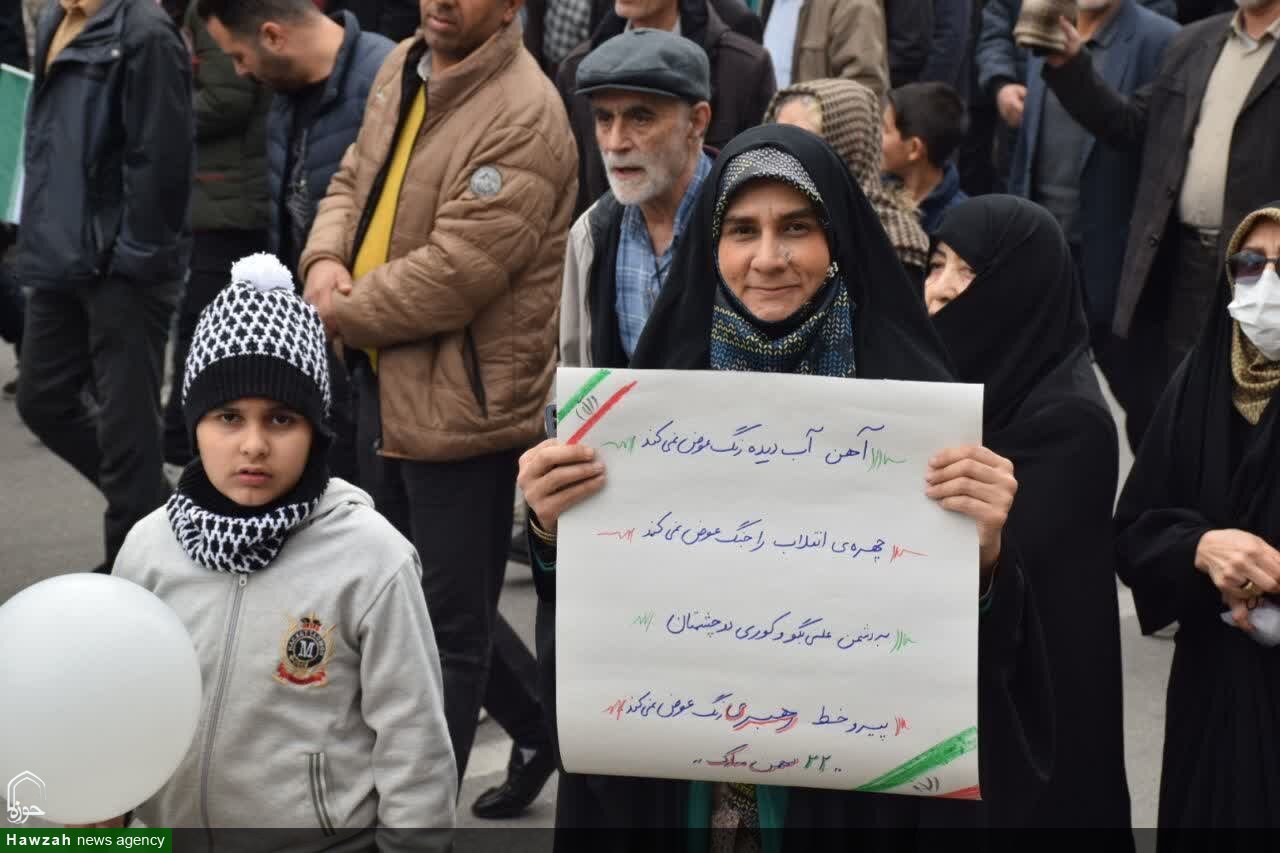 آهن آب دیده زنگ عوض نمی‌کند
چهره‌ی انقلاب را جنگ عوض نمی‌کند
به دشمن علی بگو کوری دو چشتمان
پیرو خط رهبری رنگ عوض نمی‌کند
۲۲ بهمن مبارک
M
حوزه
Hawzah news agency